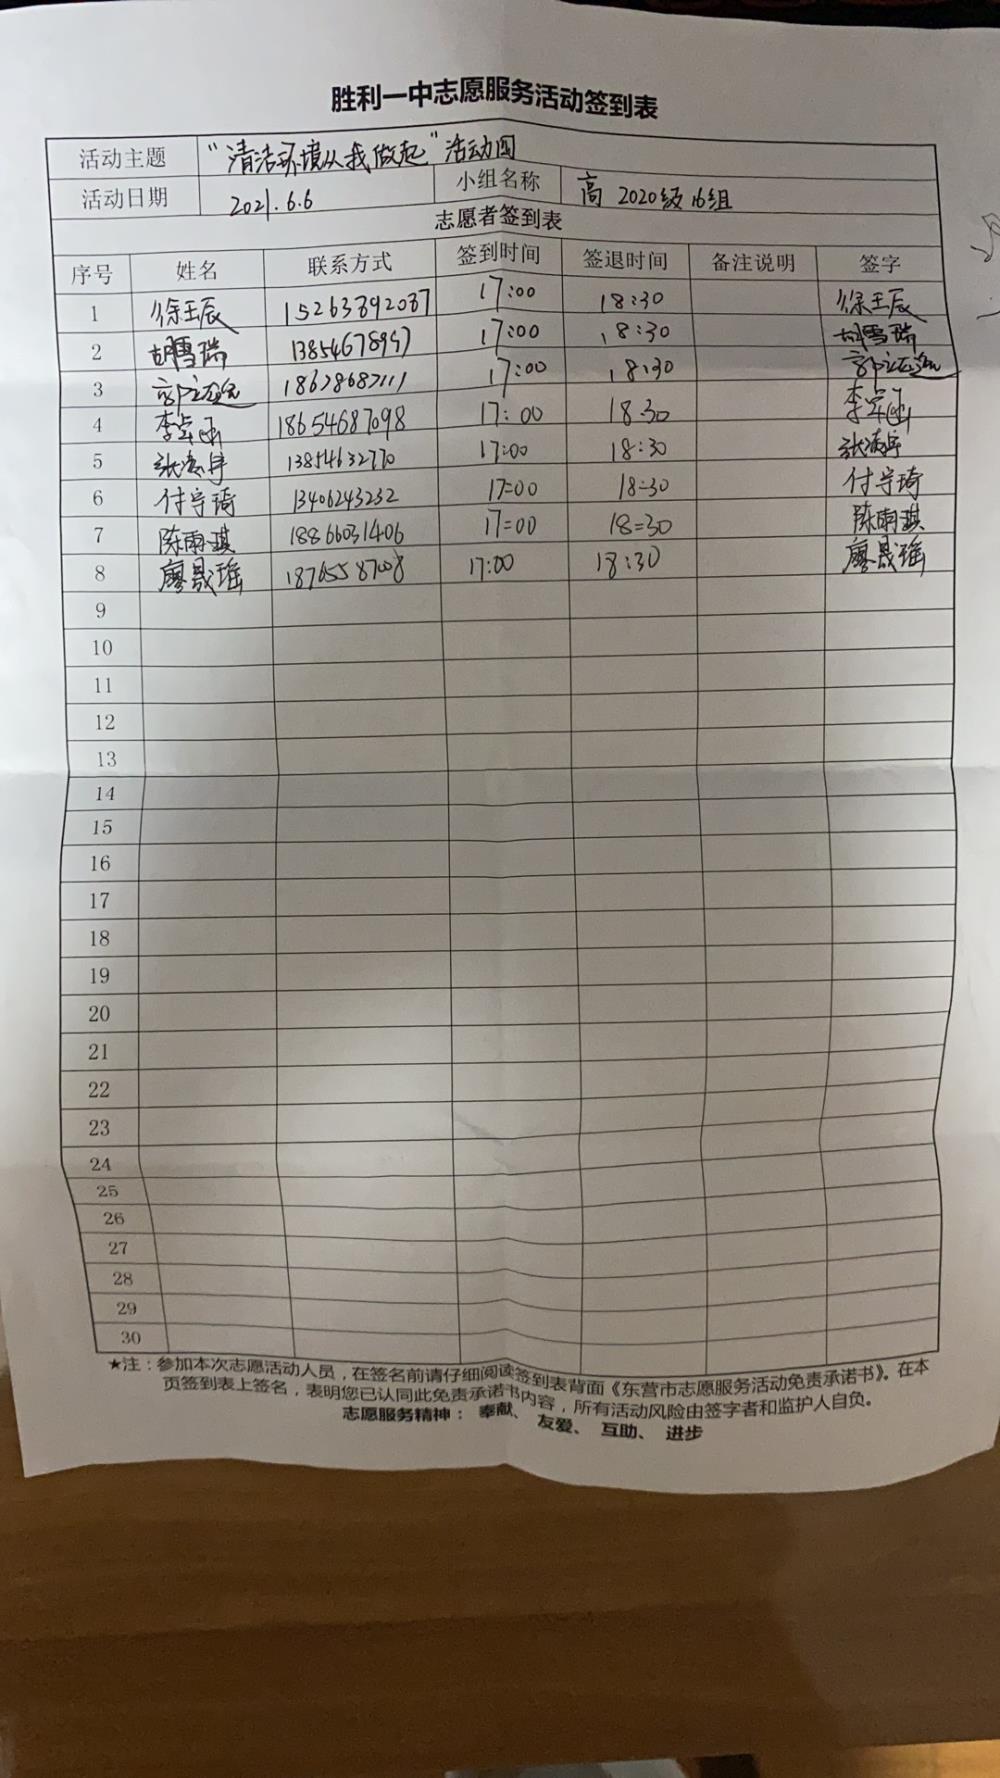 胜利一中志愿服务活动签到表
活动主题 "清洁环境从我做起"活动图
活动日期 2021.6.6 小组名称 高2020级16组
志愿者签到表
序号 姓名 联系方式 签到时间 签退时间 备注说明 签字
1 徐王辰 15263892087 17:00 18:30 徐王辰
2 胡雪瑞 17:00 18:30 胡雪瑞
3 18678687111 17:00 18:30
4 李卓函 18654687098 17:00 18:30 李卓函
5 张凌宇 13854632770 17:00 18:30 张凌宇
6 付宇琦 13406243232 17:00 18:30 付宇琦
7 陈雨琪 18866031406 17:00 18:30 陈雨琪
8 廖晟瑶 17:00 18:30 廖晟瑶
9
10
11
12
13
14
15
16
17
18
19
20
21
22
23
24
25
26
27
28
29
30
★注：参加本次志愿活动人员，在签名前请仔细阅读签到表背面《东营市志愿服务活动免责承诺书》。在本
页签到表上签名，表明您已认同此免责承诺书内容，所有活动风险由签字者和监护人自负。
志愿服务精神： 奉献、 友爱、 互助、 进步